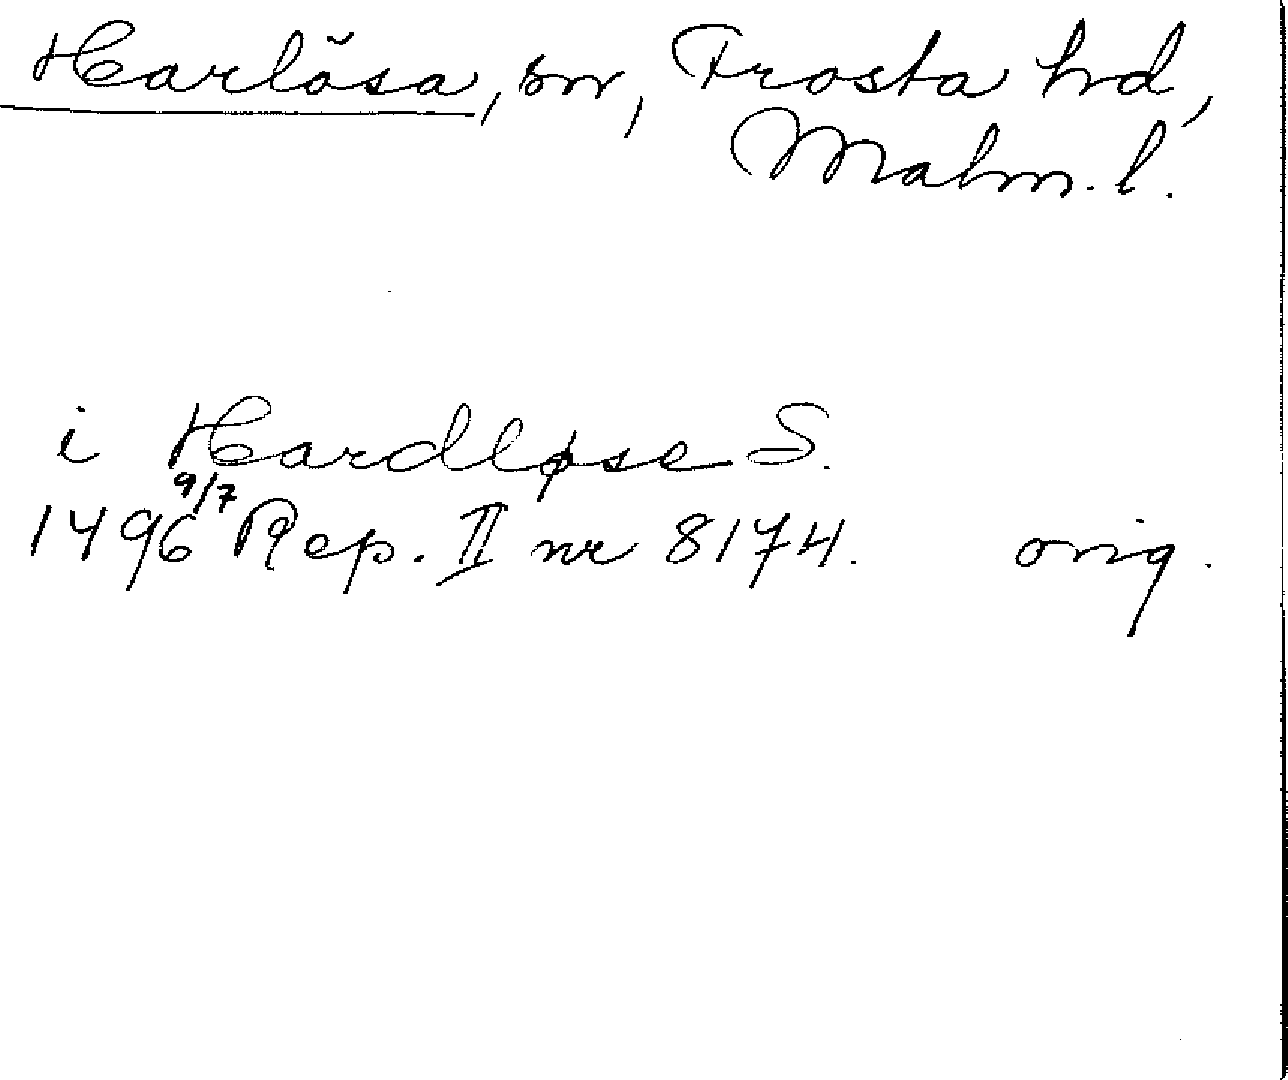 Harlösa, sn, Frosta hd,
Malm. l.
i Hardløse S.
1496 9/7 Rep. II nr 8174. orig.